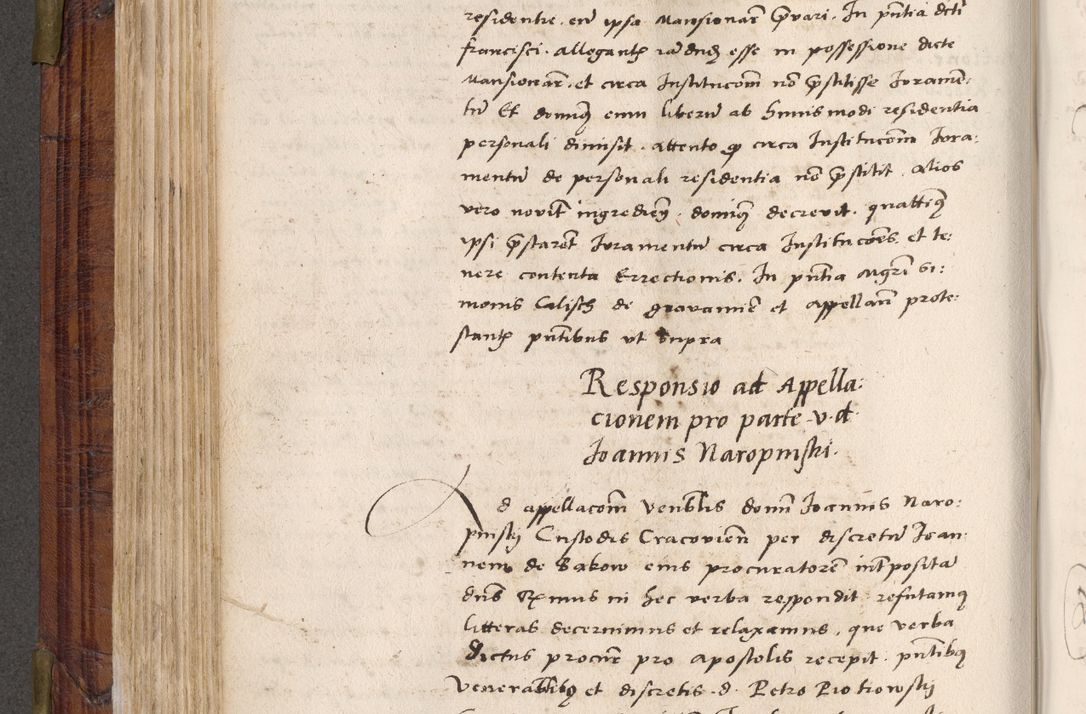 residentie, eni ipsa Mansionar p̄vari. In pn̄tia dcti
francisci. allegantꝫ eādnēꝫ esse in possessione dicte
Mansionar̄. et circa Institucōm nō p̄stitisse Iuramen:
tū Et dominꝫ eum liberū ab huiusmodi residentia
personali dimisit. attento ꝙ circa Institucōm Iura:
mentū de personali residentia nō p̄stitit. Alios
vero novit ingredien̄. dominꝫ decrevit. quattinꝫ
ipsi p̄starēt Iuramentū circa Institucōes. et te:
nere contenta Errectionis. In pn̄tia Mgr̄i Si:
monis Calisch de gravamiē et appellan̄ prote:
stantꝫ pn̄tibus ut supra
Responsio ad Appella:
cionem pro parte v. d.
Joannis Naropinski.
Ad appellacōm Venbl̄is domī Joannis Naro:
pinskj Custodis Cracovien̄ per discretū Joan
nem de Bakow eius procuratorē int̄posita
dn̄s Rx̄mus in hec verba respondit refutamꝫ
litteras decernimus et relaxamus, que verba
dictus procur̄ pro apostolis recepit. pn̄tibꝫ
Venerabl̄ibꝫ et discretis. d. Petro Piotrowskj